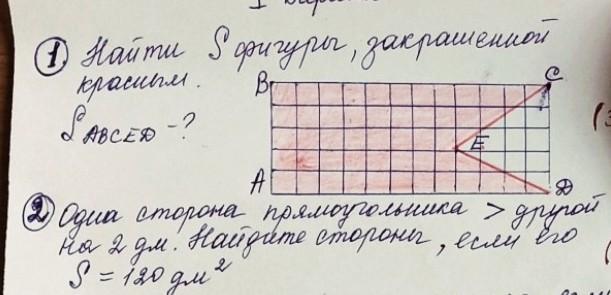 I вари
1. Найти S фигуры, закрашенной
красным.
S ABCED - ?
B
C
E
A
D
2. Одна сторона прямоугольника > другой
на 2 дм. Найдите стороны, если его
S = 120 дм²